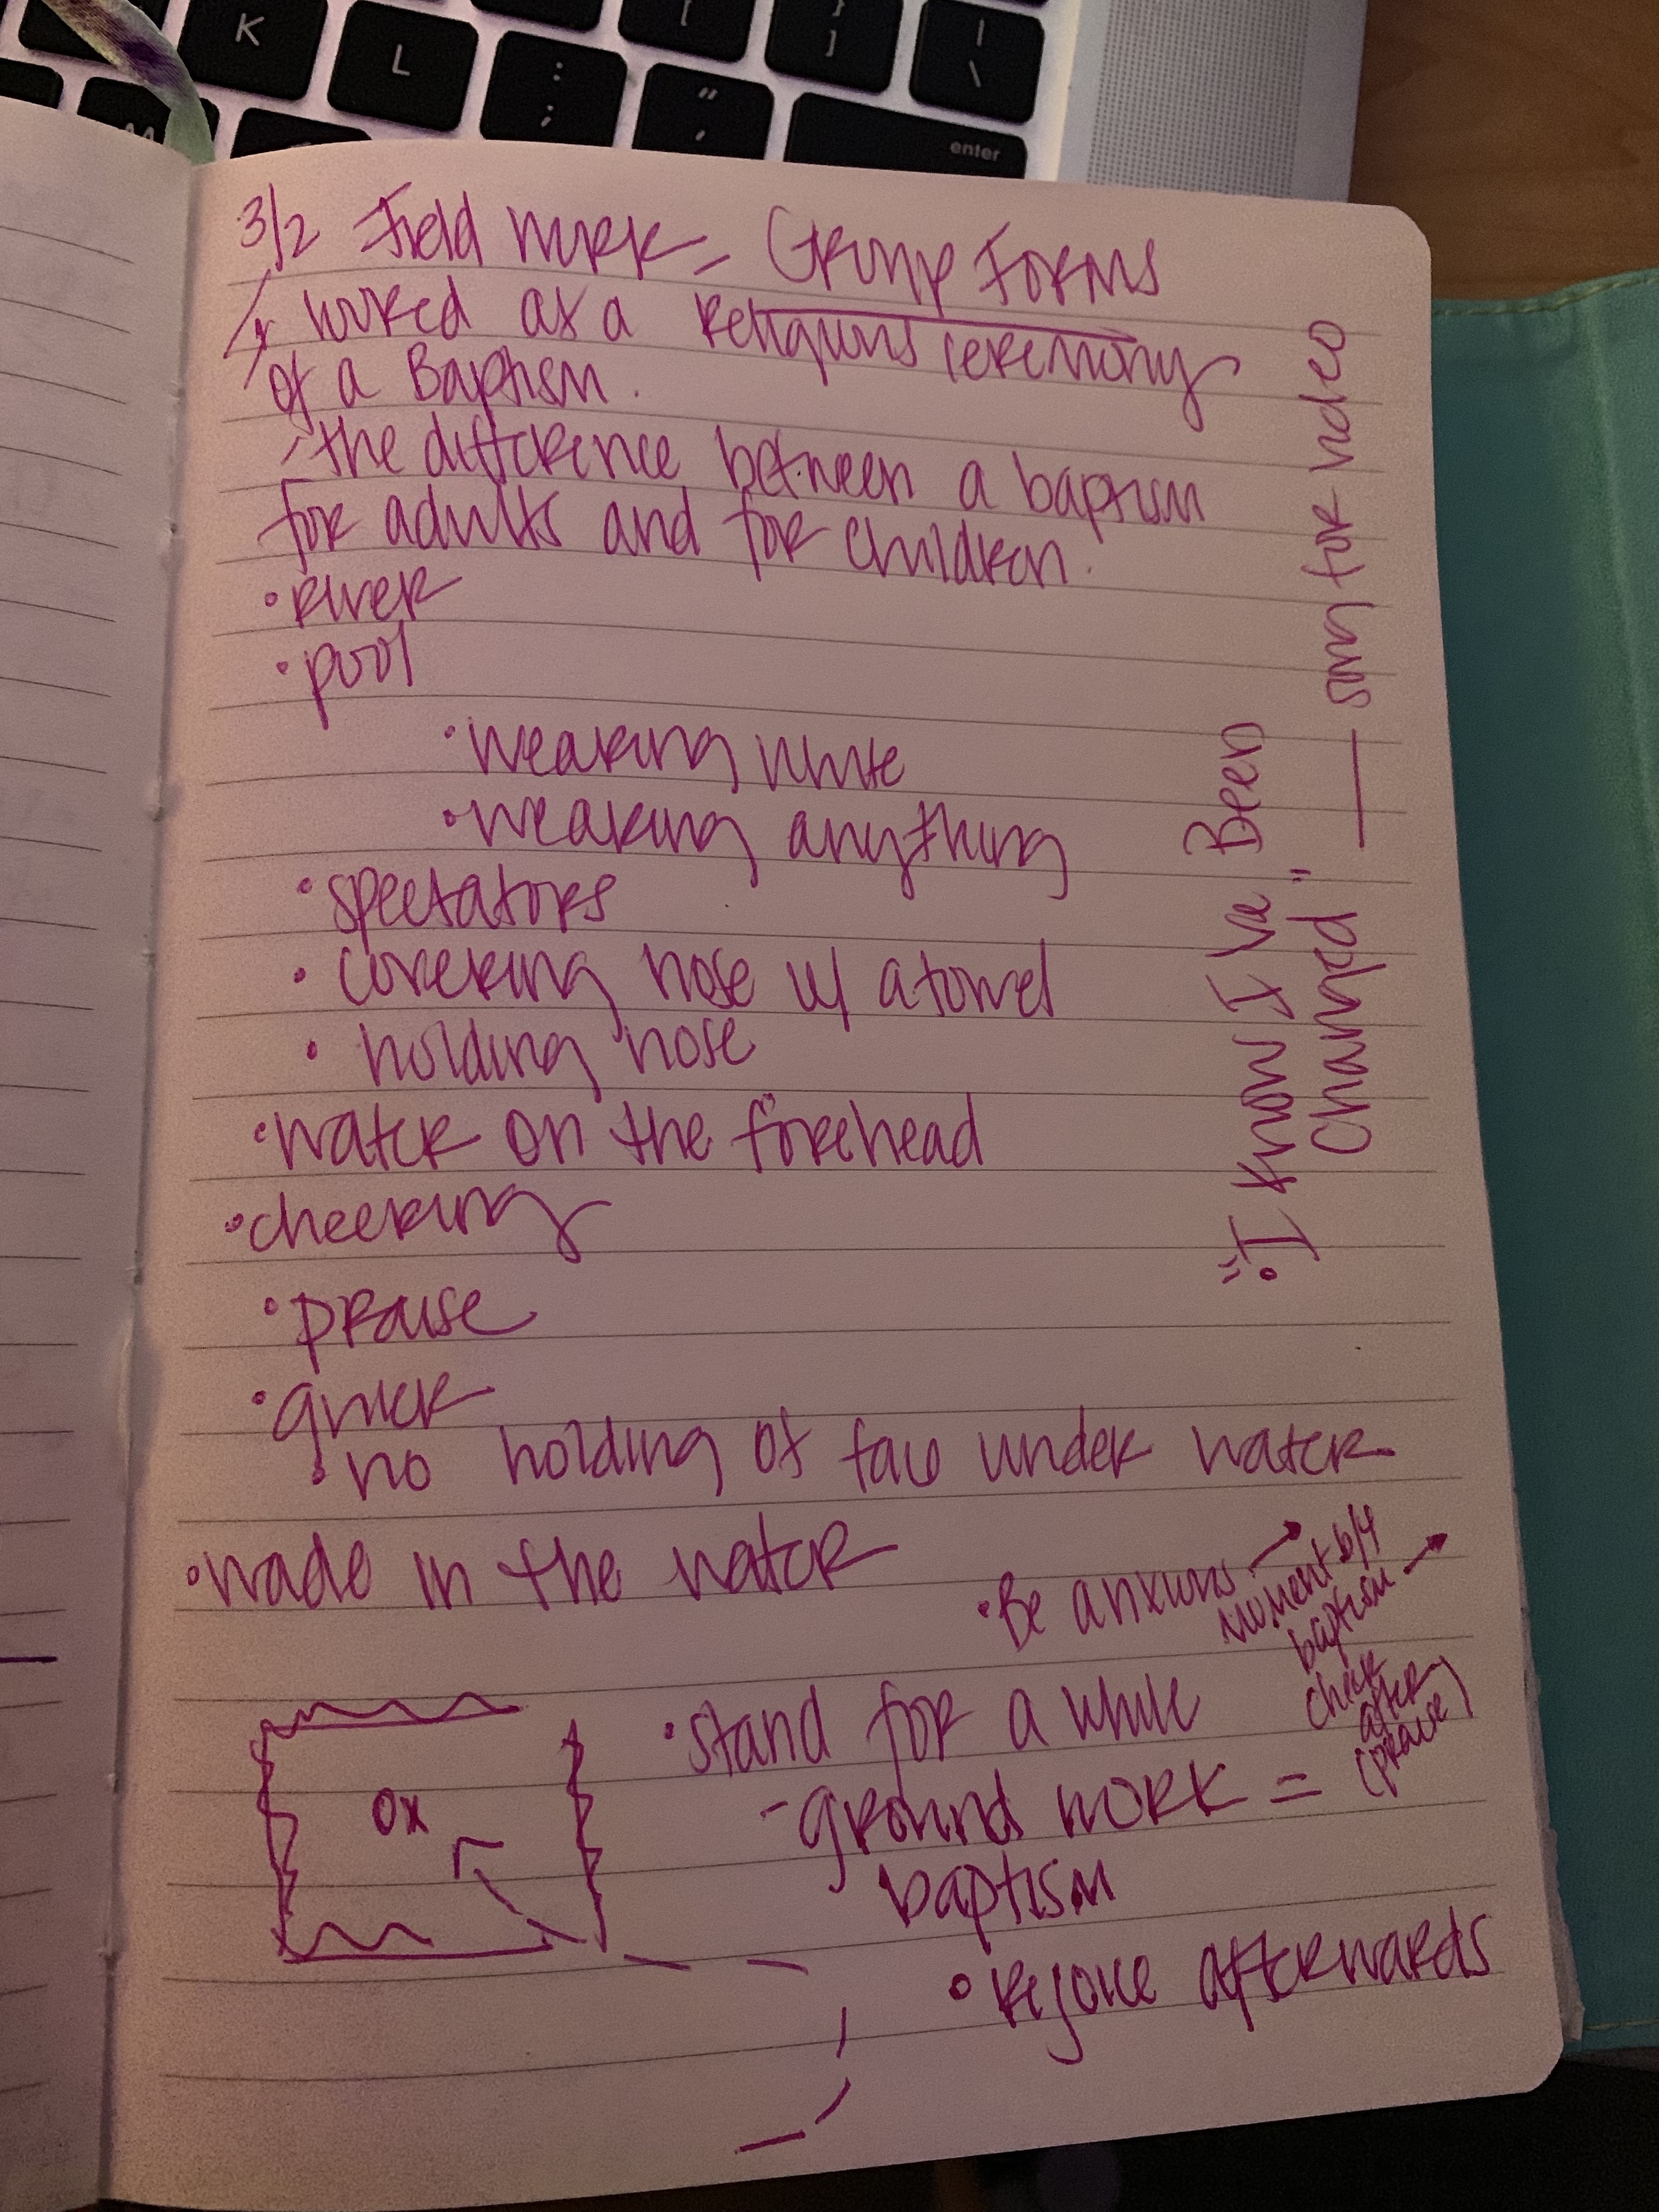 K
L
:
;
"
,
{
[
}
]
|
\
M
enter
3/2 Field Work - Group Forms
looked as a religious ceremony
of a Baptism.
- the difference between a baptism
for adults and for children.
• river
• pool
• wearing white
• wearing anything
• spectators
• covering nose w/ a towel
• holding nose
• water on the forehead
• cheering
• praise
• quick
• no holding of face under water
• wade in the water
• Be anxious → moment b/4
baptism →
cheer
after
(praise)
• stand for a while
- ground work =
baptism
• rejoice afterwards
OX
• "I Know I've Been
Changed" — song for video